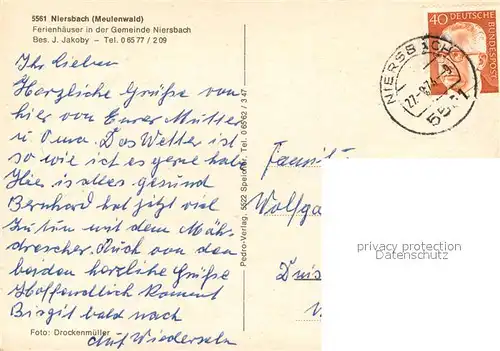 5561 Niersbach (Meulenwald)
Ferienhäuser in der Gemeinde Niersbach
Bes. J. Jakoby – Tel. 0 65 77 / 2 09
Ihr Lieben
Herzliche Grüße von
hier von Eurer Mutter
u Oma. Das Wetter ist
so wie ich es gerne hab
Hier is alles gesund
Bernhard hat jitzt viel
zu tun mit dem Mäh-
drescher. Auch von den
beiden herzliche Grüße
Hoffendlich kommt
Birgit bald nach
Auf Wiedersehn
Foto: Drockenmüller
Pedro-Verlag, 5522 Speicher, Tel. 0 65 62 / 3 47
40 DEUTSCHE BUNDESPOST
NIERSBACH
5561
Familie
Wolfga
Duis
privacy protection
Datenschutz